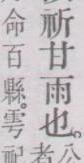 祈甘雨也。
命百縣。雩